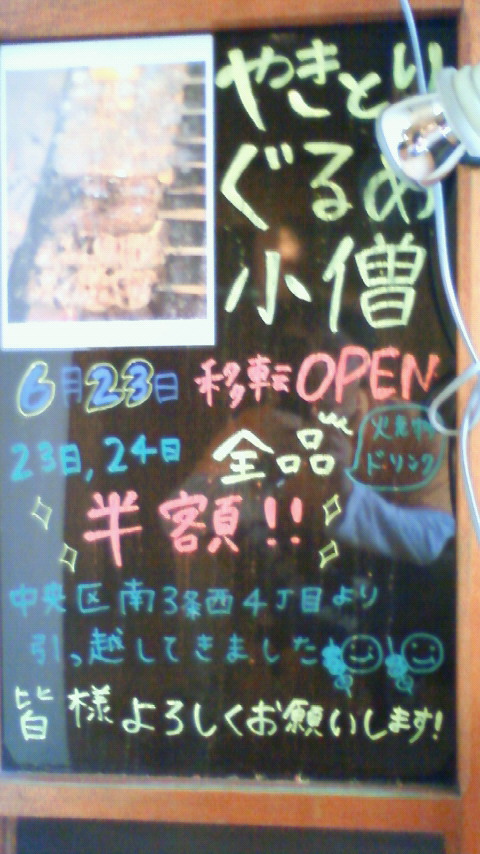 やきとり
ぐるめ
小僧
6月23日 移転OPEN
23日,24日 全品
ドリンク
半額!!
中央区南3条西4丁目より
引っ越してきました
皆様よろしくお願いします!